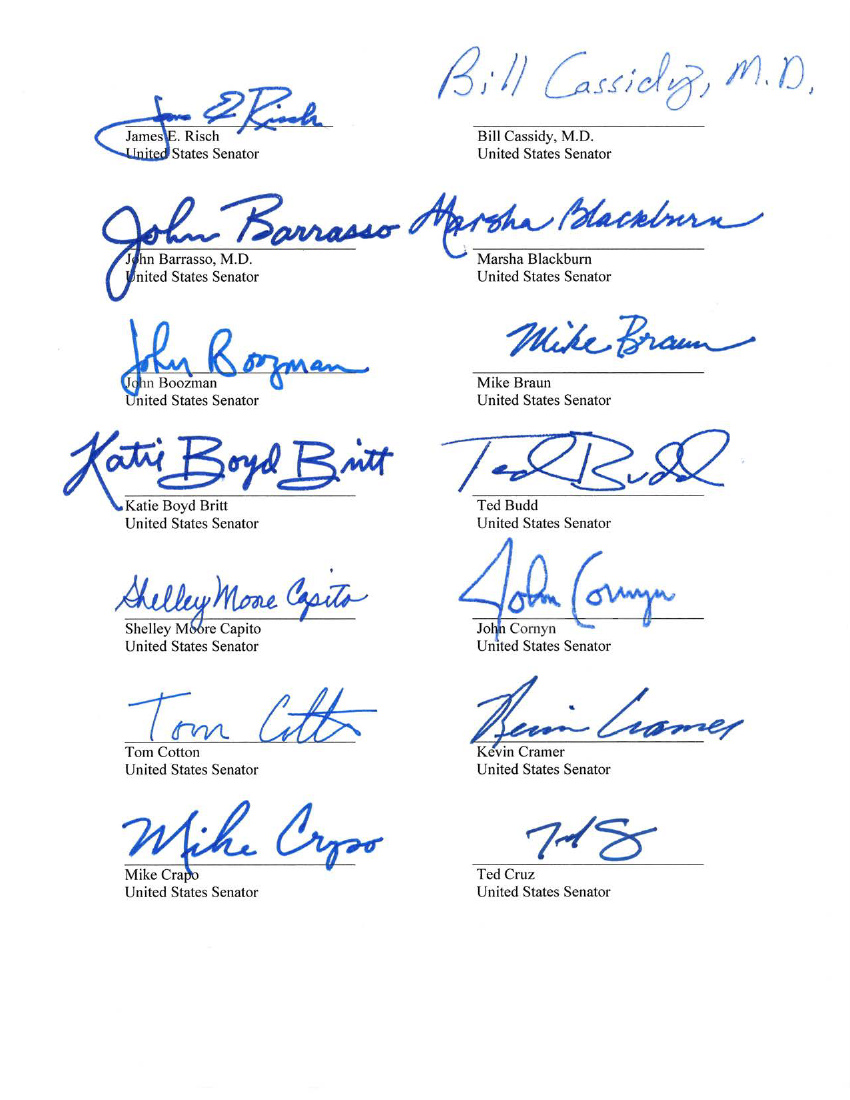 James E Risch
Bill Cassidy, M.D.
James E. Risch
Bill Cassidy, M.D.
United States Senator
United States Senator
John Barrasso
Marsha Blackburn
John Barrasso, M.D.
Marsha Blackburn
United States Senator
United States Senator
John Boozman
Mike Braun
John Boozman
Mike Braun
United States Senator
United States Senator
Katie Boyd Britt
Ted Budd
Katie Boyd Britt
Ted Budd
United States Senator
United States Senator
Shelley Moore Capito
John Cornyn
Shelley Moore Capito
John Cornyn
United States Senator
United States Senator
Tom Cotton
Kevin Cramer
Tom Cotton
Kevin Cramer
United States Senator
United States Senator
Mike Crapo
Ted
Mike Crapo
Ted Cruz
United States Senator
United States Senator